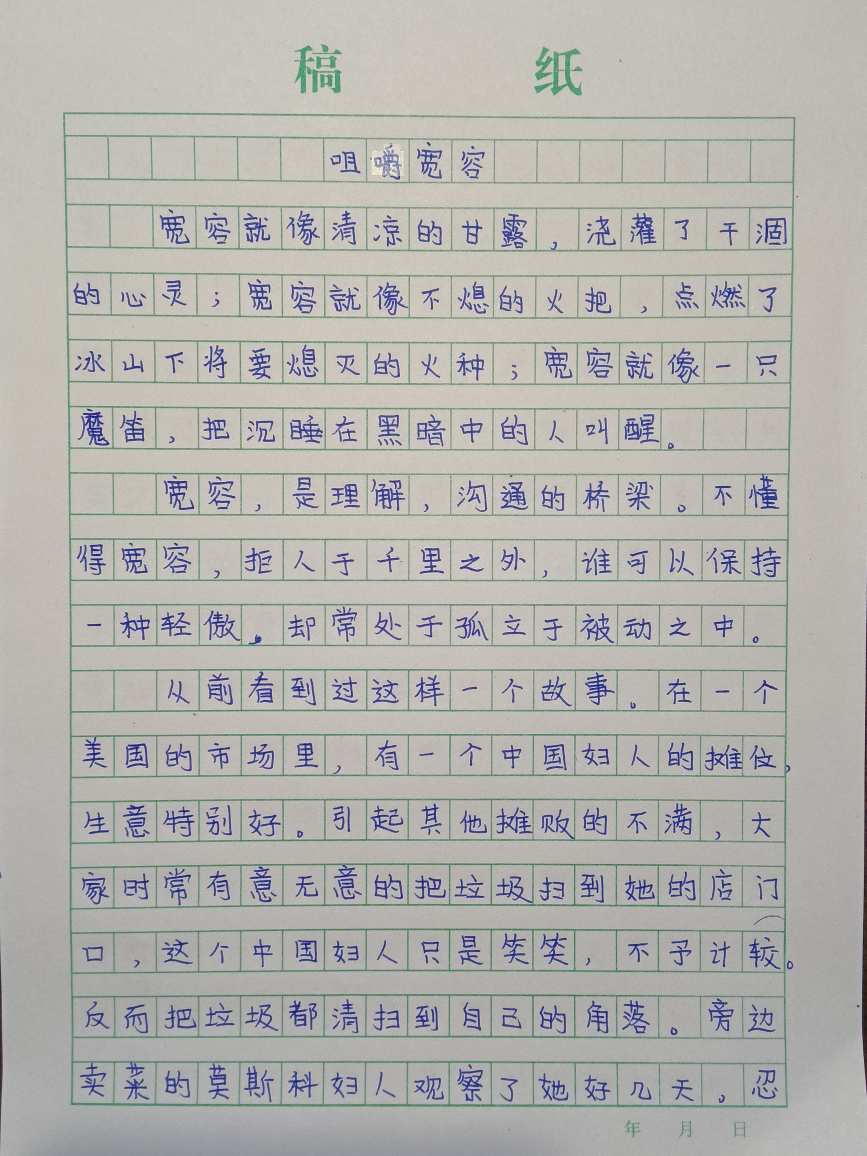 稿 纸
咀嚼宽容
宽容就像清凉的甘露，浇灌了干涸
的心灵；宽容就像不熄的火把，点燃了
冰山下将要熄灭的火种；宽容就像一只
魔笛，把沉睡在黑暗中的人叫醒。
宽容，是理解，沟通的桥梁。不懂
得宽容，拒人于千里之外，谁可以保持
一种轻傲。却常处于孤立于被动之中。
从前看到过这样一个故事。在一个
美国的市场里，有一个中国妇人的摊位，
生意特别好。引起其他摊败的不满，大
家时常有意无意的把垃圾扫到她的店门
口，这个中国妇人只是笑笑，不予计较。
反而把垃圾都清扫到自己的角落。旁边
卖菜的莫斯科妇人观察了她好几天。忍
年 月 日